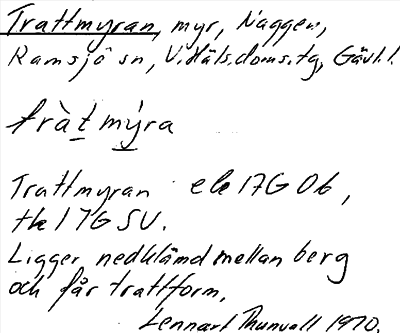 Trattmyran, myr, Naggen,
Ramsjö sn, V. Häls. doms. tg, Gävl. l.
tràt mýra
Trattmyran ek 17G 0b,
tk 17G SV.
Ligger nedklämd mellan berg
och får trattform.
Lennart Thunvall 1970.